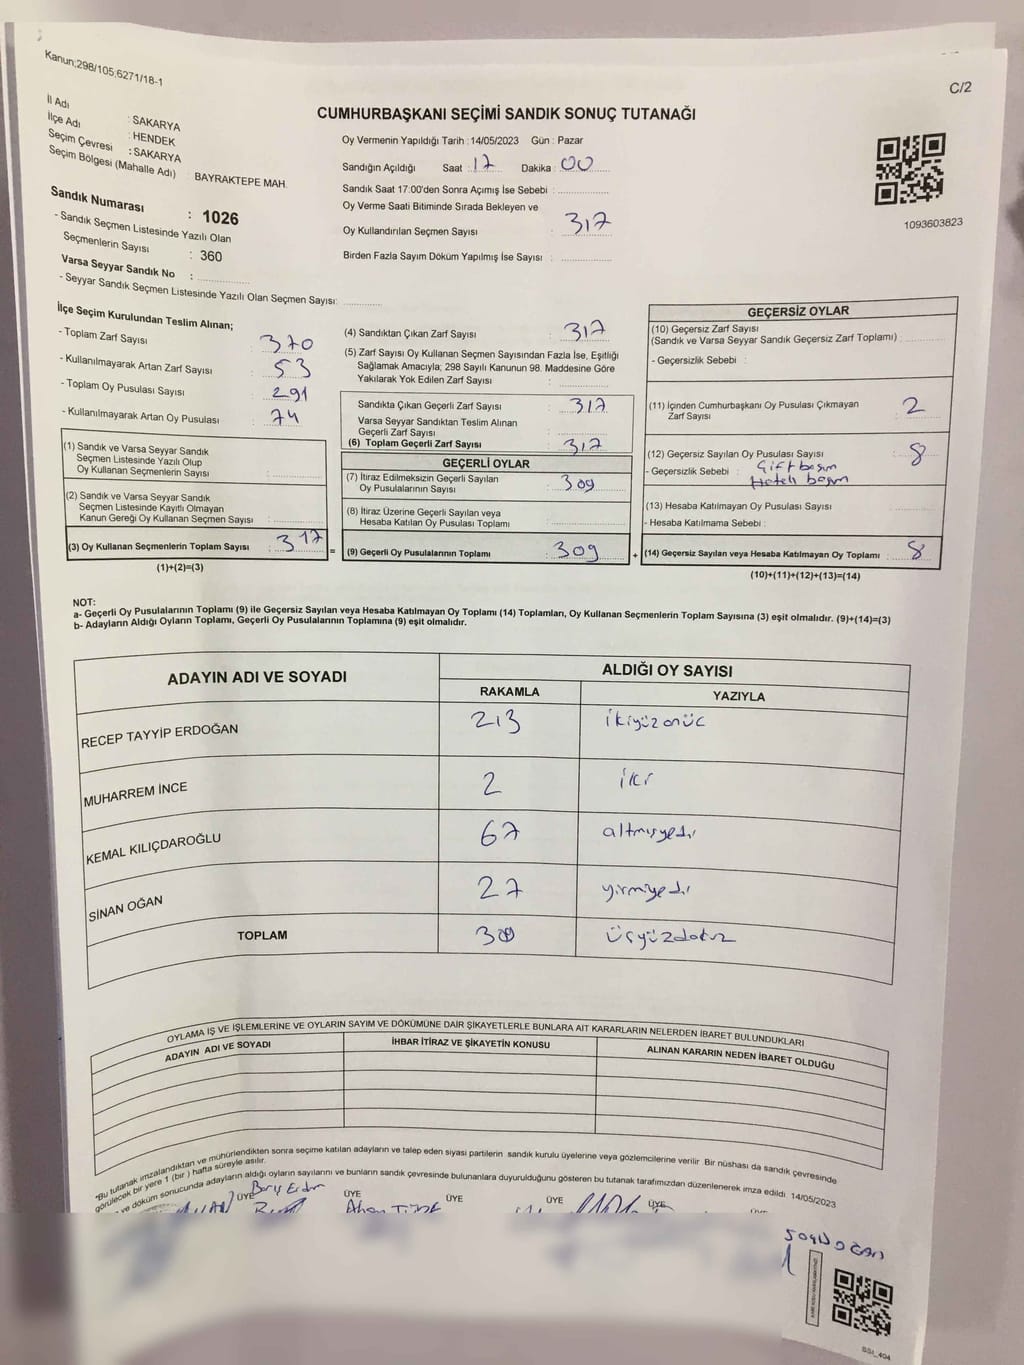 Kanun;298/105,6271/18-1
C/2
CUMHURBAŞKANI SEÇİMİ SANDIK SONUÇ TUTANAĞI
İl Adı : SAKARYA
İlçe Adı : HENDEK
Seçim Çevresi : SAKARYA
Seçim Bölgesi (Mahalle Adı) : BAYRAKTEPE MAH.
Sandık Numarası : 1026
- Sandık Seçmen Listesinde Yazılı Olan
Seçmenlerin Sayısı : 360
Varsa Seyyar Sandık No :
- Seyyar Sandık Seçmen Listesinde Yazılı Olan Seçmen Sayısı:
Oy Vermenin Yapıldığı Tarih : 14/05/2023 Gün : Pazar
Sandığın Açıldığı Saat : 17 Dakika : 00
Sandık Saat 17:00'den Sonra Açımış İse Sebebi :
Oy Verme Saati Bitiminde Sırada Bekleyen ve
Oy Kullandırılan Seçmen Sayısı : 317
Birden Fazla Sayım Döküm Yapılmış İse Sayısı :
1093603823
İlçe Seçim Kurulundan Teslim Alınan;
- Toplam Zarf Sayısı : 370
- Kullanılmayarak Artan Zarf Sayısı : 53
- Toplam Oy Pusulası Sayısı : 291
- Kullanılmayarak Artan Oy Pusulası : 74
(1) Sandık ve Varsa Seyyar Sandık
Seçmen Listesinde Yazılı Olup
Oy Kullanan Seçmenlerin Sayısı :
(2) Sandık ve Varsa Seyyar Sandık
Seçmen Listesinde Kayıtlı Olmayan
Kanun Gereği Oy Kullanan Seçmen Sayısı :
(3) Oy Kullanan Seçmenlerin Toplam Sayısı : 317
(1)+(2)=(3)
=
(4) Sandıktan Çıkan Zarf Sayısı : 317
(5) Zarf Sayısı Oy Kullanan Seçmen Sayısından Fazla İse, Eşitliği
Sağlamak Amacıyla; 298 Sayılı Kanunun 98. Maddesine Göre
Yakılarak Yok Edilen Zarf Sayısı :
Sandıkta Çıkan Geçerli Zarf Sayısı : 317
Varsa Seyyar Sandıktan Teslim Alınan
Geçerli Zarf Sayısı :
(6) Toplam Geçerli Zarf Sayısı : 317
GEÇERLİ OYLAR
(7) İtiraz Edilmeksizin Geçerli Sayılan
Oy Pusulalarının Sayısı : 309
(8) İtiraz Üzerine Geçerli Sayılan veya
Hesaba Katılan Oy Pusulası Toplamı :
(9) Geçerli Oy Pusulalarının Toplamı : 309
+
GEÇERSİZ OYLAR
(10) Geçersiz Zarf Sayısı
(Sandık ve Varsa Seyyar Sandık Geçersiz Zarf Toplamı) :
- Geçersizlik Sebebi :
(11) İçinden Cumhurbaşkanı Oy Pusulası Çıkmayan
Zarf Sayısı : 2
(12) Geçersiz Sayılan Oy Pusulası Sayısı : 8
- Geçersizlik Sebebi : Çift basım
Hatalı basım
(13) Hesaba Katılmayan Oy Pusulası Sayısı :
- Hesaba Katılmama Sebebi :
(14) Geçersiz Sayılan veya Hesaba Katılmayan Oy Toplamı : 8
(10)+(11)+(12)+(13)=(14)
NOT:
a- Geçerli Oy Pusulalarının Toplamı (9) ile Geçersiz Sayılan veya Hesaba Katılmayan Oy Toplamı (14) Toplamları, Oy Kullanan Seçmenlerin Toplam Sayısına (3) eşit olmalıdır. (9)+(14)=(3)
b- Adayların Aldığı Oyların Toplamı, Geçerli Oy Pusulalarının Toplamına (9) eşit olmalıdır.
ADAYIN ADI VE SOYADI
ALDIĞI OY SAYISI
RAKAMLA YAZIYLA
RECEP TAYYİP ERDOĞAN 213 ikiyüzonüc
MUHARREM İNCE 2 iki
KEMAL KILIÇDAROĞLU 67 altmışyedi
SİNAN OĞAN 27 yirmiyedi
TOPLAM 309 üçyüzdokuz
OYLAMA İŞ VE İŞLEMLERİNE VE OYLARIN SAYIM VE DÖKÜMÜNE DAİR ŞİKAYETLERLE BUNLARA AİT KARARLARIN NELERDEN İBARET BULUNDUKLARI
ADAYIN ADI VE SOYADI
İHBAR İTİRAZ VE ŞİKAYETİN KONUSU
ALINAN KARARIN NEDEN İBARET OLDUĞU
"Bu tutanak imzalandıktan ve mühürlendikten sonra seçime katılan adayların ve talep eden siyasi partilerin sandık kurulu üyelerine veya gözlemcilerine verilir Bir nüshası da sandık çevresinde
görülecek bir yere 1 (bir ) hafta süreyle asılır.
ve döküm sonucunda adayların aldığı oyların sayılarını ve bunların sandık çevresinde bulunanlara duyurulduğunu gösteren bu tutanak tarafımızdan düzenlenerek imza edildi. 14/05/2023
ÜYE ÜYE ÜYE ÜYE ÜYE